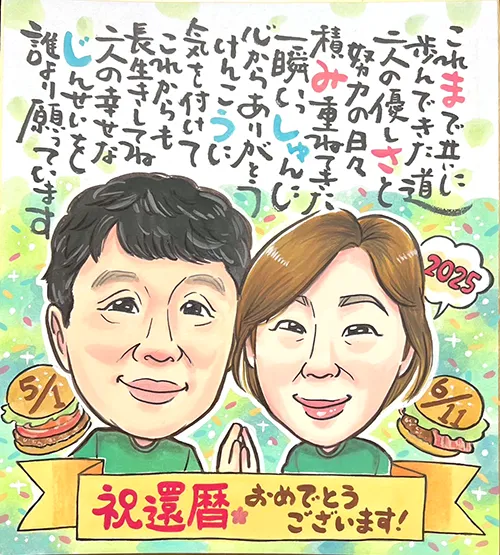 これまで共に
歩んできた道
二人の優しさと
努力の日々
積み重ねてきた
一瞬いっしゅんに
心からありがとう
けんこうに
気を付けて
これからも
長生きしてね
二人の幸せな
じんせいを
誰より願っています
2025
5/1
6/11
祝還暦 おめでとう
ございます!